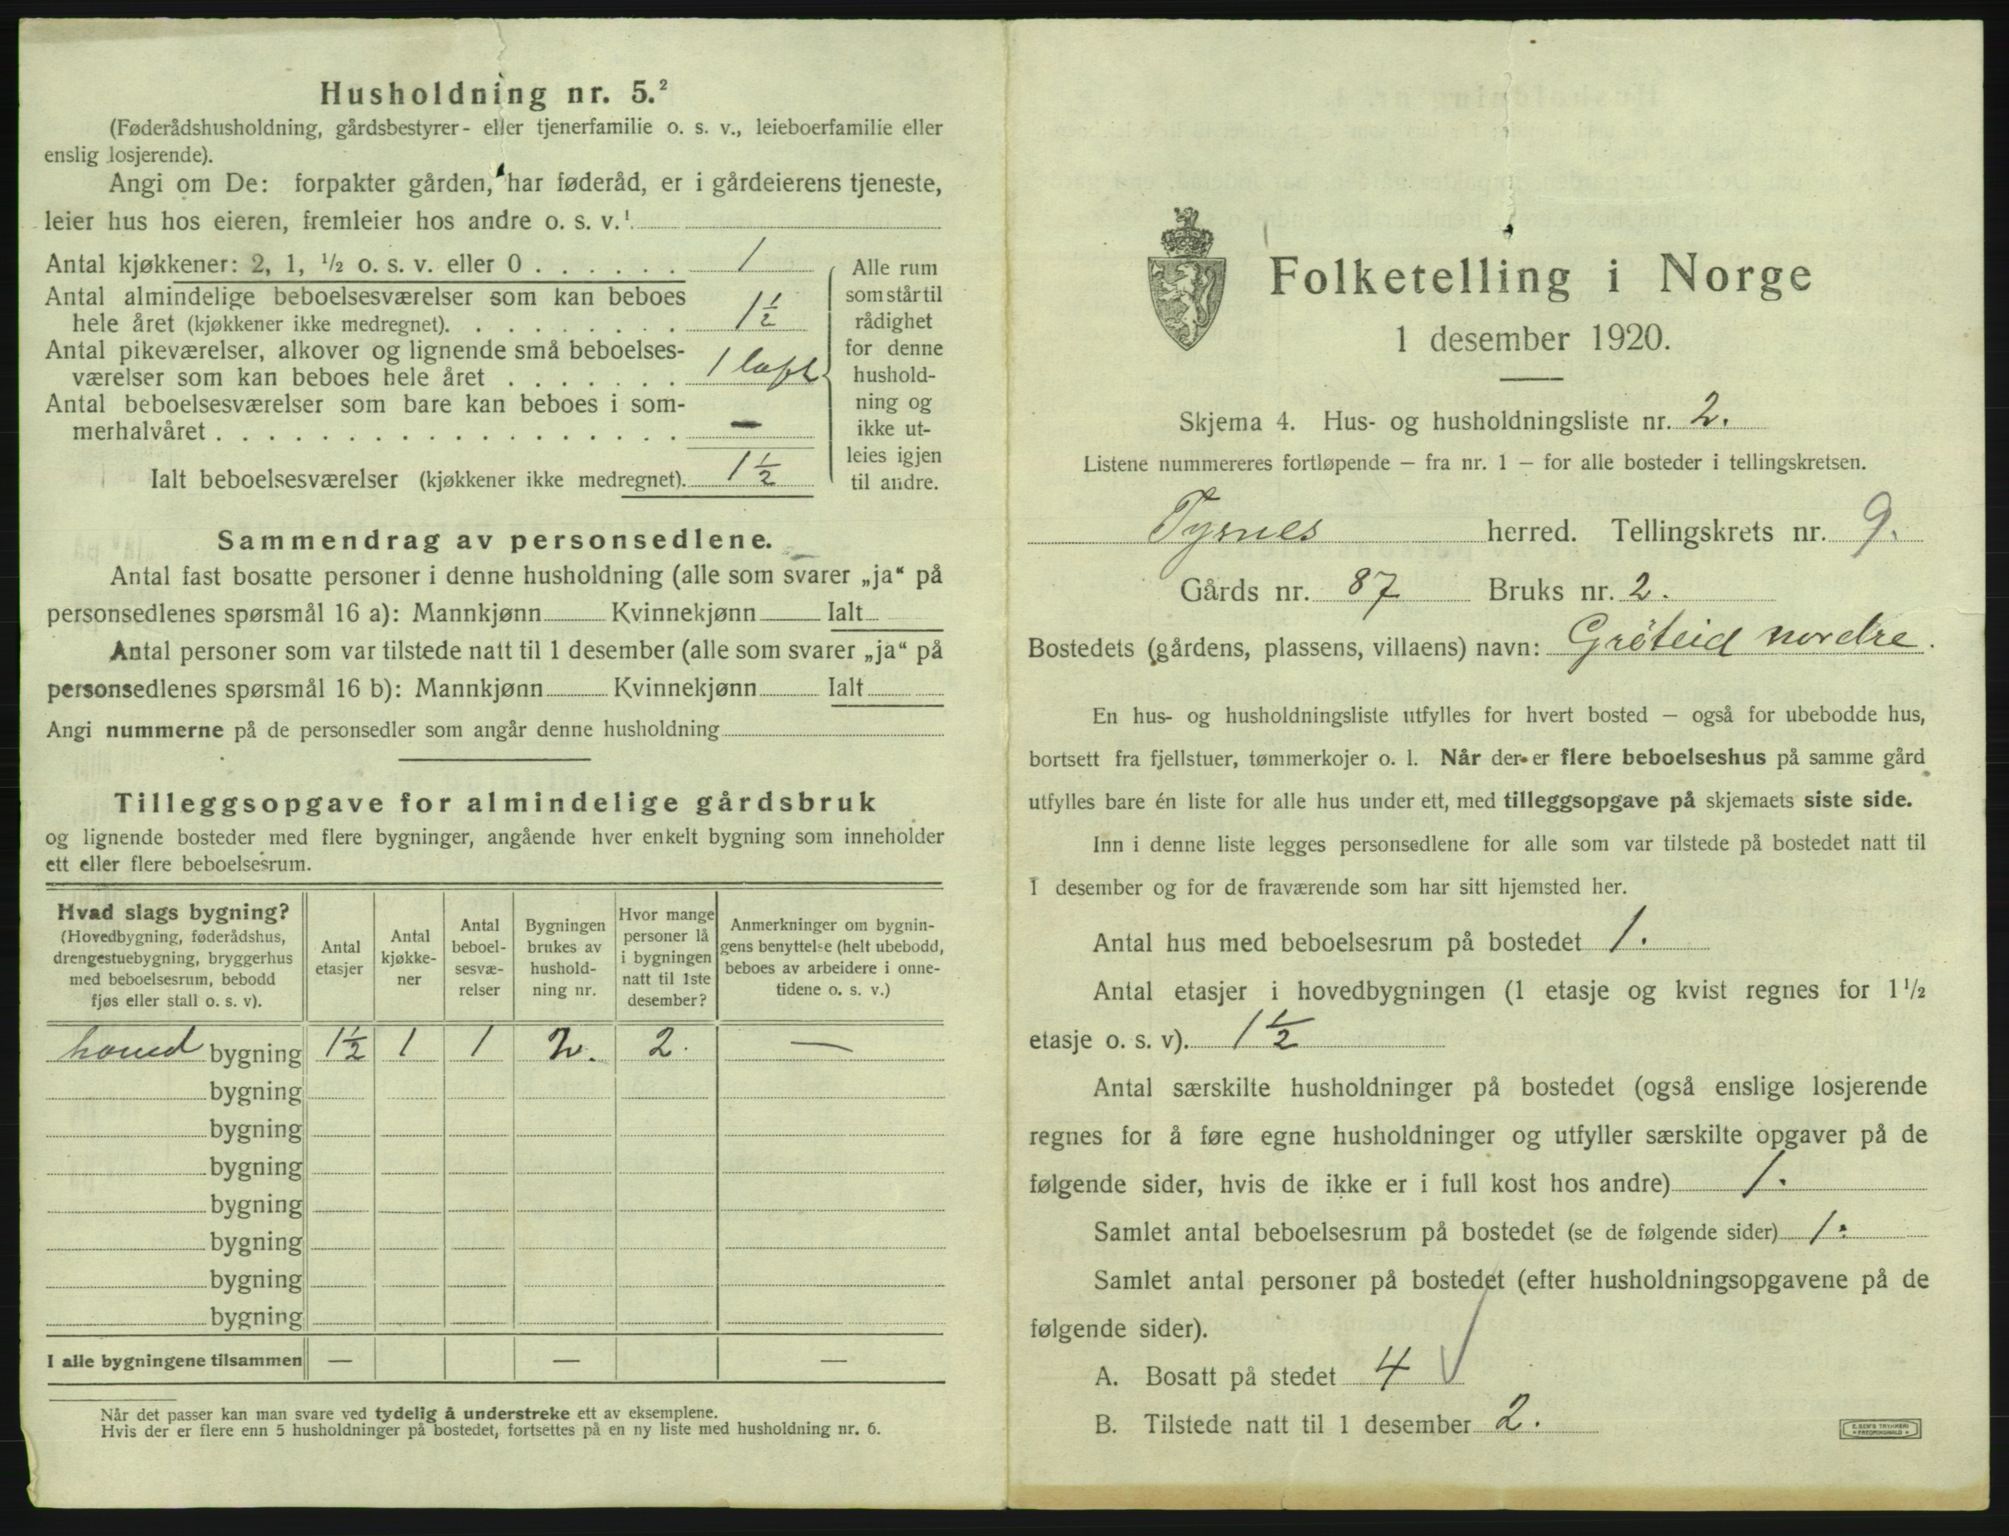 Husholdning nr. 5.²
(Føderådshusholdning, gårdsbestyrer- eller tjenerfamilie o. s. v., leieboerfamilie eller
enslig losjerende).
Angi om De: forpakter gården, har føderåd, er i gårdeierens tjeneste,
leier hus hos eieren, fremleier hos andre o. s. v.¹
Antal kjøkkener: 2, 1, ½ o. s. v. eller 0 . . . . . . 1
Antal almindelige beboelsesværelser som kan beboes
hele året (kjøkkener ikke medregnet). . . . . . . . . 1½
Antal pikeværelser, alkover og lignende små beboelses-
værelser som kan beboes hele året . . . . . . . 1 loft
Antal beboelsesværelser som bare kan beboes i som-
merhalvåret . . . . . . . . . . . . . . . . . . —
Ialt beboelsesværelser (kjøkkener ikke medregnet). 1½
Alle rum
som står til
rådighet
for denne
hushold-
ning og
ikke ut-
leies igjen
til andre.
Sammendrag av personsedlene.
Antal fast bosatte personer i denne husholdning (alle som svarer „ja“ på
personsedlenes spørsmål 16 a): Mannkjønn Kvinnekjønn Ialt
Antal personer som var tilstede natt til 1 desember (alle som svarer „ja“ på
personsedlenes spørsmål 16 b): Mannkjønn Kvinnekjønn Ialt
Angi nummerne på de personsedler som angår denne husholdning
Tilleggsopgave for almindelige gårdsbruk
og lignende bosteder med flere bygninger, angående hver enkelt bygning som inneholder
ett eller flere beboelsesrum.
Hvad slags bygning?
(Hovedbygning, føderådshus,
drengestuebygning, bryggerhus
med beboelsesrum, bebodd
fjøs eller stall o. s. v).
Antal
etasjer
Antal
kjøkke-
ner
Antal
beboel-
sesvæ-
relser
Bygningen
brukes av
hushold-
ning nr.
Hvor mange
personer lå
i bygningen
natt til 1ste
desember?
Anmerkninger om bygnin-
gens benyttelse (helt ubebodd,
beboes av arbeidere i onne-
tidene o. s. v.)
hoved bygning 1½ 1 1 2. 2. —
bygning
bygning
bygning
bygning
bygning
bygning
bygning
I alle bygningene tilsammen — — —
Når det passer kan man svare ved tydelig å understreke ett av eksemplene.
Hvis der er flere enn 5 husholdninger på bostedet, fortsettes på en ny liste med husholdning nr. 6.
Folketelling i Norge
1 desember 1920.
Skjema 4. Hus- og husholdningsliste nr. 2.
Listene nummereres fortløpende — fra nr. 1 — for alle bosteder i tellingskretsen.
Tysnes herred. Tellingskrets nr. 9.
Gårds nr. 87 Bruks nr. 2.
Bostedets (gårdens, plassens, villaens) navn: Gröteid nordre.
En hus- og husholdningsliste utfylles for hvert bosted — også for ubebodde hus,
bortsett fra fjellstuer, tømmerkojer o. l. Når der er flere beboelseshus på samme gård
utfylles bare én liste for alle hus under ett, med tilleggsopgave på skjemaets siste side.
Inn i denne liste legges personsedlene for alle som var tilstede på bostedet natt til
1 desember og for de fraværende som har sitt hjemsted her.
Antal hus med beboelsesrum på bostedet 1.
Antal etasjer i hovedbygningen (1 etasje og kvist regnes for 1½
etasje o. s. v). 1½
Antal særskilte husholdninger på bostedet (også enslige losjerende
regnes for å føre egne husholdninger og utfyller særskilte opgaver på de
følgende sider, hvis de ikke er i full kost hos andre) 1.
Samlet antal beboelsesrum på bostedet (se de følgende sider) 1.
Samlet antal personer på bostedet (efter husholdningsopgavene på de
følgende sider).
A. Bosatt på stedet 4 √
B. Tilstede natt til 1 desember 2.